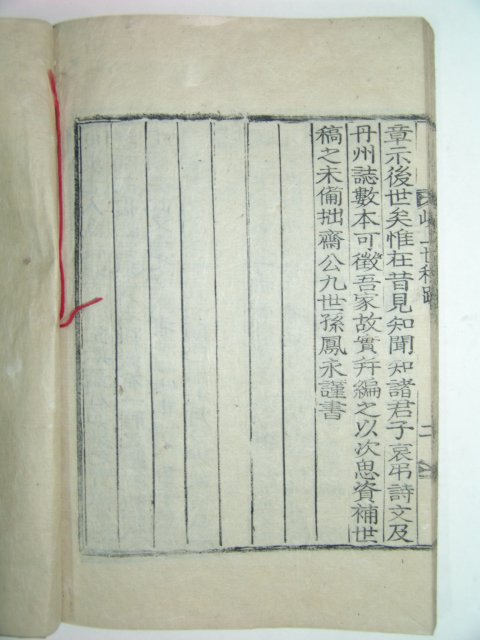 章示後世矣惟在昔見知聞知諸君子哀弔詩文及
丹州誌數本可徵吾家故實并編之以次思資補世
稿之未備拙齋公九世孫鳳永謹書
世稿
二